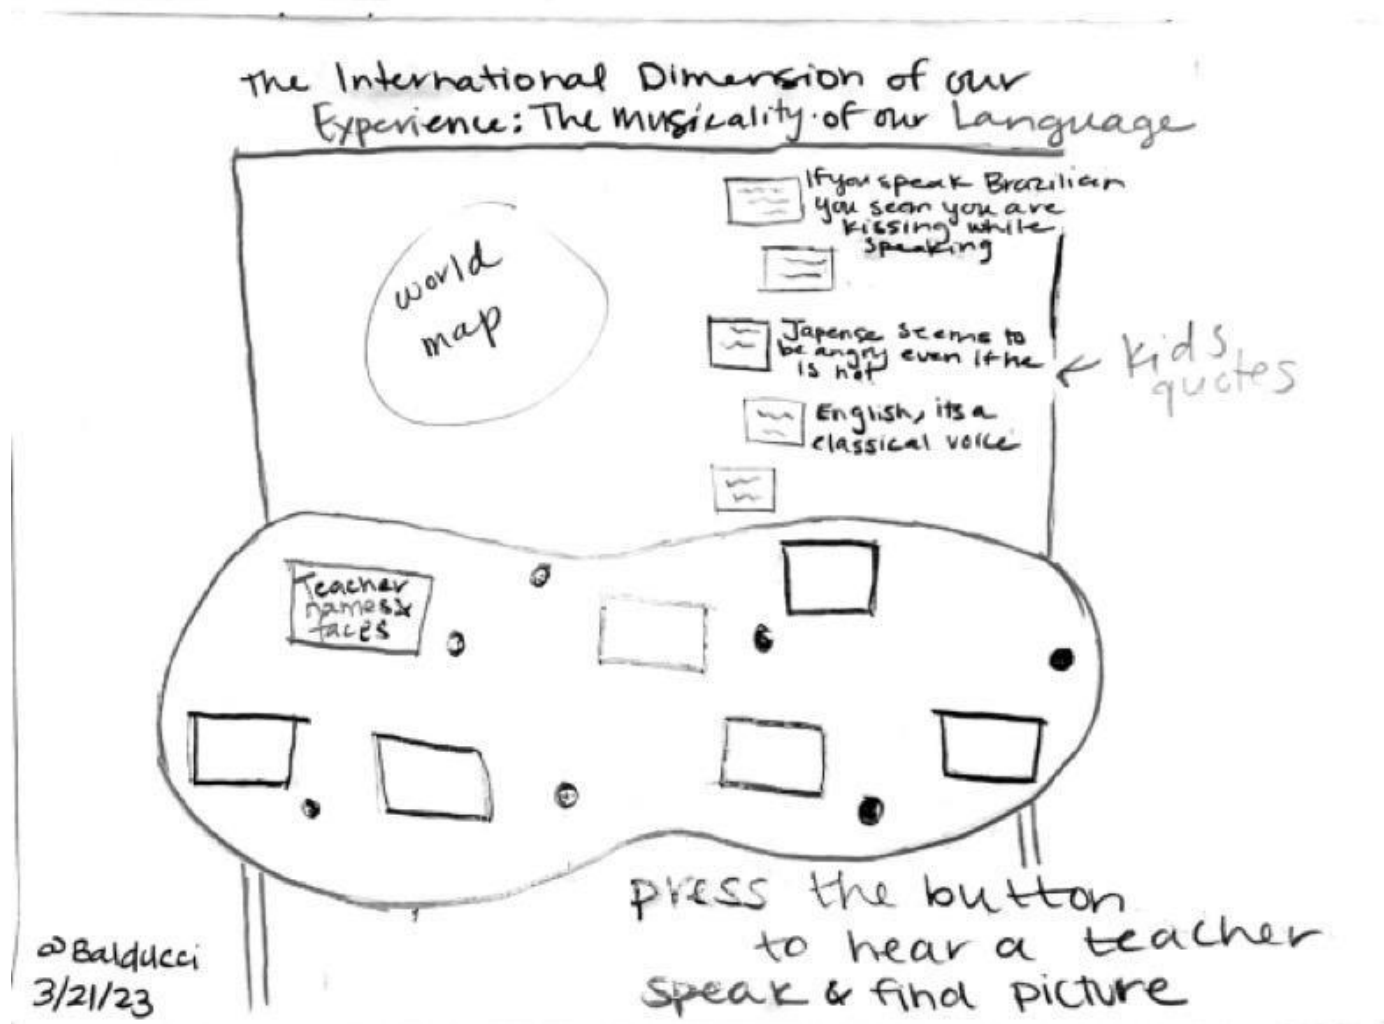 The International Dimension of our
Experience: The musicality of our Language
If you speak Brazilian
you seem you are
kissing while
speaking
world
map
Japense seems to
be angry even if he
is not
kids
quotes
English, its a
classical voice
Teacher
names &
faces
press the button
to hear a teacher
speak & find picture
@Balducci
3/21/23